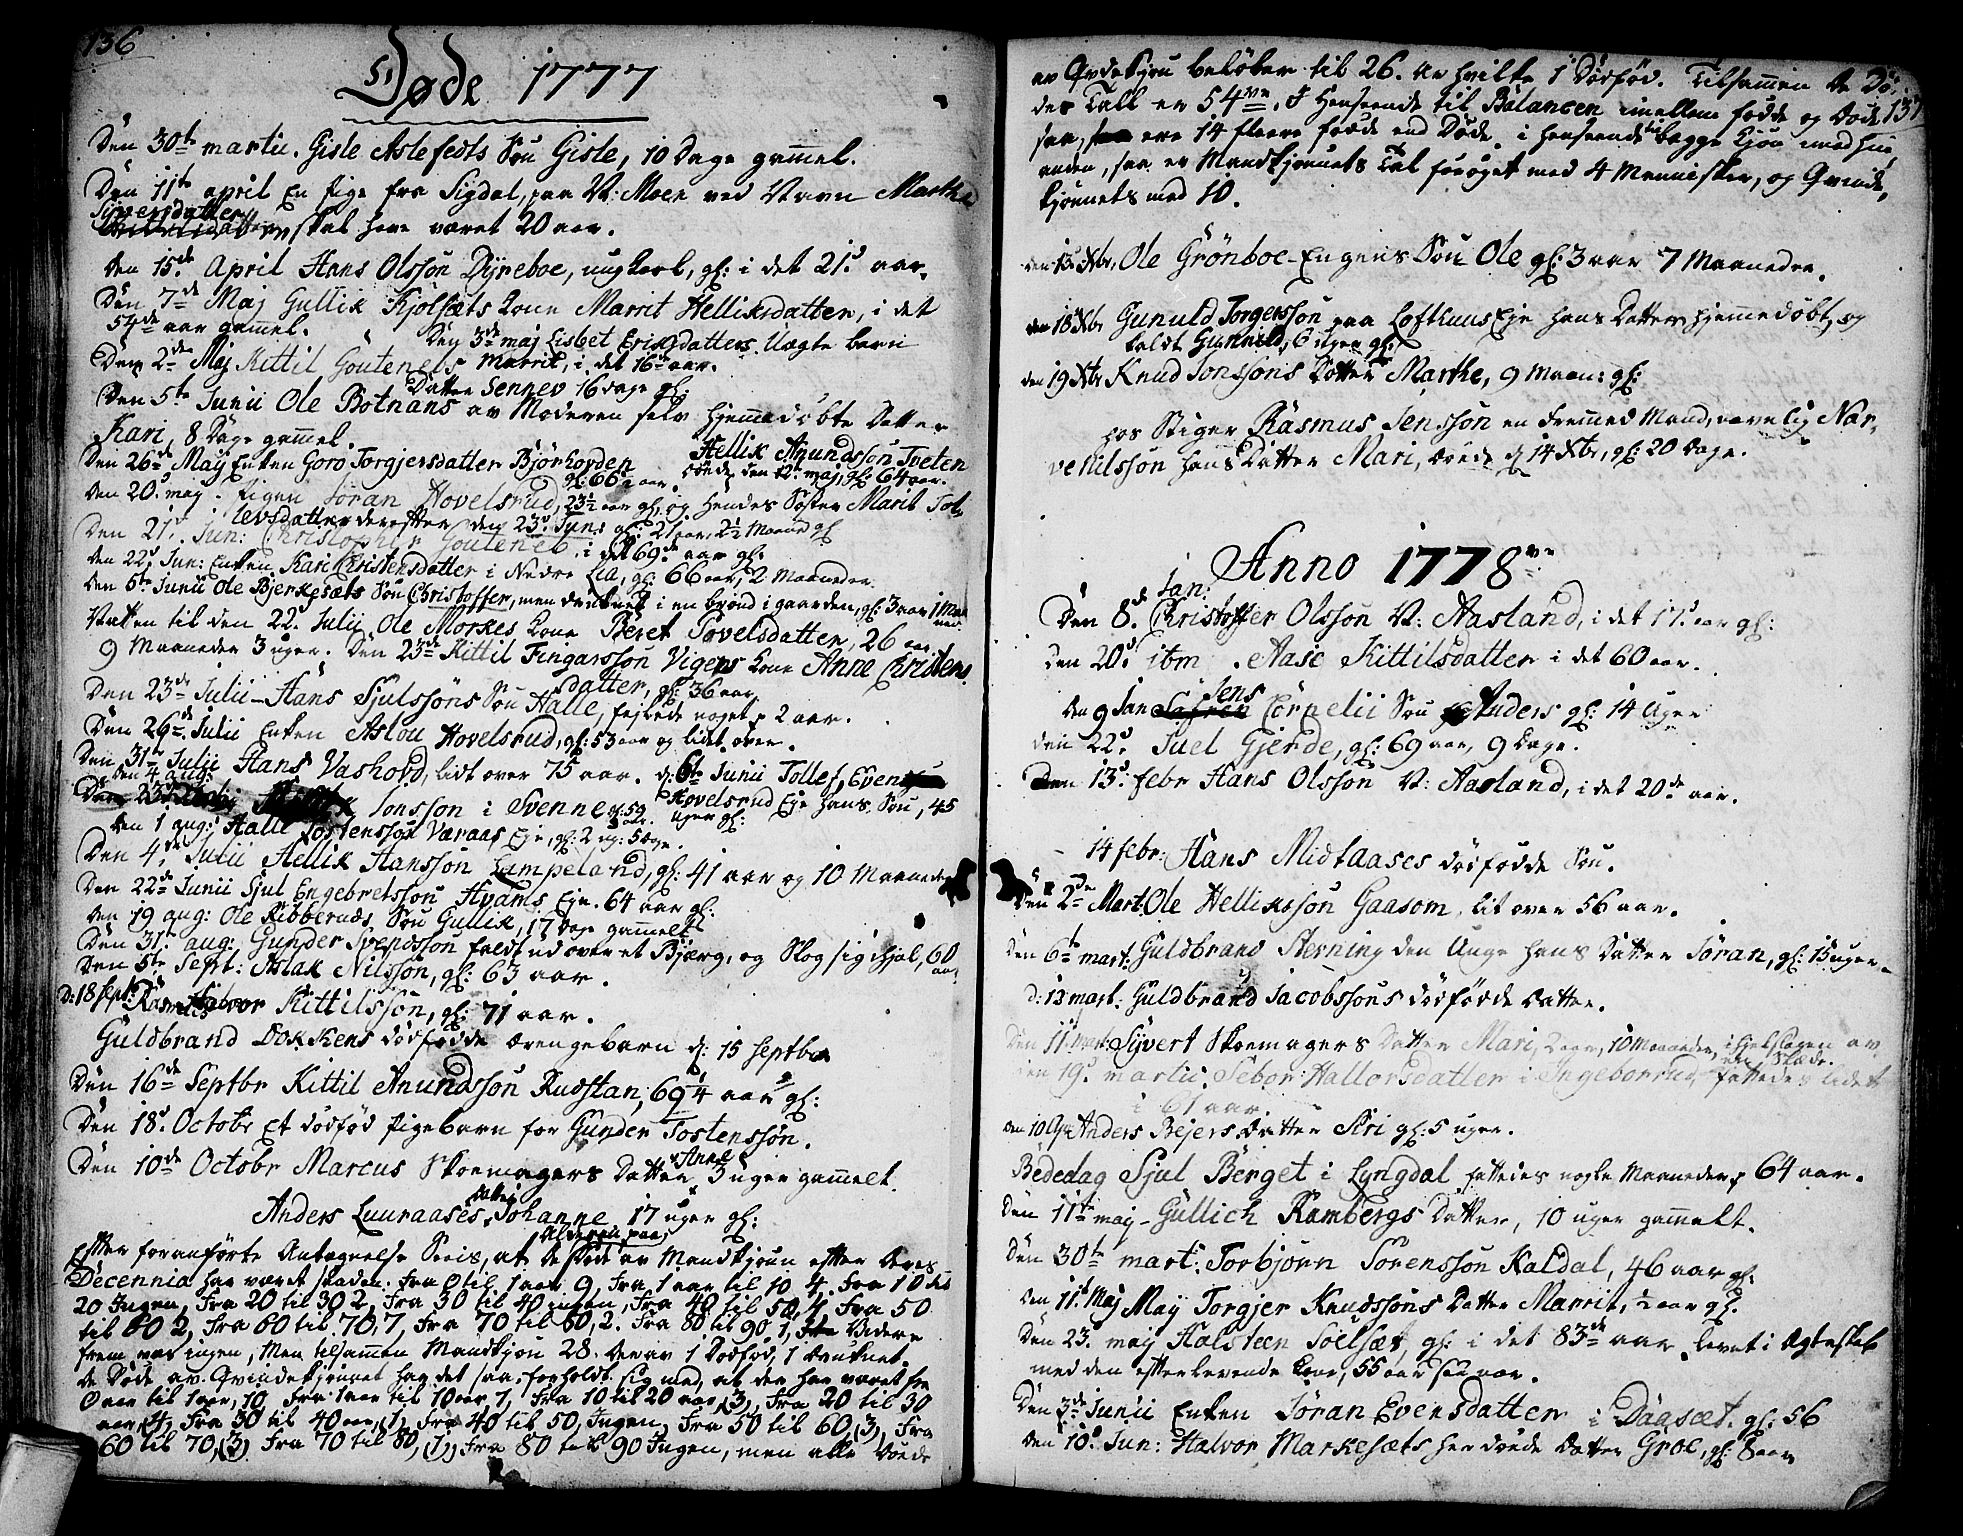 136
Døde 1777
Den 30te martii. Gisle Aslefedts Søn Gisle, 10 Dage gammel.
Den 11te april En Pige fra Sigdal, paa V: Moen ved Navn Marthe
Syversdatter
skal have været 20 aar.
Den 15de April Hans Olssøn Dyreboe, ungkarl, gl: i det 21de aar.
Den 7de Maj Gullik Kjølsæts Kone Marrit Helliksdatter, i det
54de aar gammel. Den 3de maj Lisbet Eriksdatters Uægte barn
Den 2de Maj Kittil Goutenels Marrit, i det 16de aar.
Datter Sennev 16 dage gl.
Den 5te Junii Ole Botnans av Moderen selv hjemmedøbte Datter
Kari, 8 Dage gammel.
Den 26de May Enken Goro Torgjersdatter Bjørhovden Hellik Amundssøn Tveten
gl: 66 aar. døde den 12te maj, gl: 64 aar.
Den 20de maj. Pigen Jøran Hovelsrud, 23½ aar gl, og hendes Søster Marit Tol-
levsdatter derefter den 23de Jun: gl: 21 aar, 2½ Maaned gl.
Den 21de Jun: Christopher Goutenel i det 69de aar gl.
Den 22de Jun: Enken Kari Christensdatter i Nedre Lia, gl: 66 aar, 2 Maaneder.
Den 5te Junii Ole Bjerkesæts Søn Christoffer, men druknet i en brønd i gaarden, gl: 3 aar 1 Maa
ned.
Natten til den 22. Julii Ole Morkes Kone Beret Povelsdatter, 26 aar
9 Maaneder 3 uger. Den 23de Kittil Fingarssøn Vigens Kone Anne Christens
datter, gl: 36 aar
Den 23de Julii Hans Sjulssøns Søn Halle, fejlede noget, 2 aar.
Den 26de Julii Enken Aslou Hovelsrud, gl: 53 aar og lidet over.
Den 31te Julii Hans Vashovd, lidt over 75 aar. d: 6te Junii Tollef Evens
Den 4 aug:
Jonssøn i Svenne gl: 59 aar. Hovelsrud Eje hans Søn, 45
uger gl:
Den 1 aug: Halle Tostenssøn Væraas Eje, gl: 2 ug: 5 dage.
Den 4de Julii Hellik Hanssøn Lampeland, gl: 41 aar og 10 Maaneder
Den 22de Junii Sjul Engebretssøn Hvams Eje. 64 aar gl:
Den 19 aug: Ole Ribberuds Søn Gullik, 17 Dage gammelt
Den 31te aug: Gunder Svendssøn faldt ud over et Bjærg, og slog sig ihjel, 60
aar
Den 5te Sept: Aslak Nilssøn, gl: 63 aar.
D: 18 Sept: Halvor Kittilssøn, gl: 71 aar.
Guldbrand Dokkens dødfødde drengebarn d: 15 Septbr
Den 16de Septbr Kittil Anundssøn Rudstan, 69¼ aar gl:
Den 18de Octobr Et dødfød Pigebarn for Gunder Tostenssøn.
Den 10de Octobr Marcus Skoemagers Datter Anne 3 uger gammelt.
Anders Luuraases Datter Johanne 17 uger gl:
Efter foranførte Antægnelse Sees, at Alderen paa de Døde av Mandkjøn efter deres
Decennia har været saaden: Fra 0 til 1 aar 9, Fra 1 aar til 10, 4, Fra 10 til
20 Ingen, Fra 20 til 30 2, Fra 30 til 40 ingen, Fra 40 til 50, 4, Fra 50
til 60 2, Fra 60 til 70, 7, Fra 70 til 80, 2. Fra 80 til 90 1, videre
frem var ingen, Men tilsammen Mandkjøn 28. derav 1 Dødfød, 1 Druknet.
De Døde av Qvindekjønnet har det saa forholdt sig med, at der har været fra
0 aar til 1 aar, 10, Fra 1 aar til 10 aar, 1, Fra 10 til 20 aar, (3), Fra 20 til 30
aar, (4), Fra 30 til 40 aar, (1), Fra 40 til 50, Ingen, Fra 50 til 60, (3), Fra
60 til 70, (3) Fra 70 til 80, (1), Fra 80 til 90 Ingen, men alle Døde
137
av Qvdekjøn beløber til 26. av hvilke 1 Dødfød. Tilsammen de Dø-
des Tall er 54ve. I Henseende til Balancen imellem fødde og Døde
saa, ere 14 fleere fødde end Døde. i henseende til begge kjøn mod hin
anden, saa er Mandkjønnets Tal forøget med 4 Mennisker, og Qvinde-
kjønnets med 10.
den 13 Xbr, Ole Grønboe-Engens Søn Ole gl: 3 aar 7 Maaneder.
den 18 Xbr Gunuld Torgerssøn paa Lofthuus Eje hans Datter hjemmedøbt, og
kaldt Gunnild, 6 uger gl.
den 19 Xbr Knud Jonssøns Datter Marthe, 9 Maan: gl:
hos Stiger Rasmus Jenssøn en fremmed Mand, navnlig Nar-
ve Nilssøn hans Datter Mari, døde d 14 Xbr, gl: 20 Dage.
Anno 1778
Den 8de Jan: Christoffer Olssøn V: Aasland, i det 17de aar gl:
Den 20de itm Aase Kittilsdatter i det 60 aar.
Den 9 Jan Jens Cornelii Søn Anders gl: 14 Uger
Den 22de Juel Gjerde, gl: 69 aar, 9 Dage.
Den 13de febr Hans Olssøn V: Aasland, i det 20de aar.
14 febr: Hans Midtaases dødfødde Søn.
Den 2den Mart. Ole Hellikssøn Gaasom, lit over 56 aar.
Den 6te mart: Guldbrand Sterning den Unge hans Datter Jøran, gl: 15 uger.
D: 12 mart: Guldbrand Jacobssøns dødfødde Datter.
Den 11te mart: Syvert Skoemagers Datter Mari, 2 aar, 10 Maaneder, ihjelslagen av
en Slæde.
Den 19de martii Tebor Hallorsdatter i Ingeborrud, fattedes lidet
i 61 aar
Anders Bejers Datter Siri gl: 5 uger.
Bededag Sjul Berget i Lyngdal fattedes nogle Maaneder, 64 aar.
Den 11te maj Gullich Rambergs Datter, 10 uger gammelt.
Den 30te mart: Torbjørn Sørenssøn Kaldal, 46 aar gl:
Den 11te Maj May Torgjer Knudssøns Datter Marrit, ½ aar gl.
Den 23de maj Halsteen Toelsæt, gl: i det 83de aar, levet i Egteskab
med den efterlevende Kone, 55 aar
Den 3de Junii Enken Jøran Evensdatter i Daasæt. gl: 56
Den 10de Jun: Halvor Markesæts her døde Datter Groe, gl: 8 aar